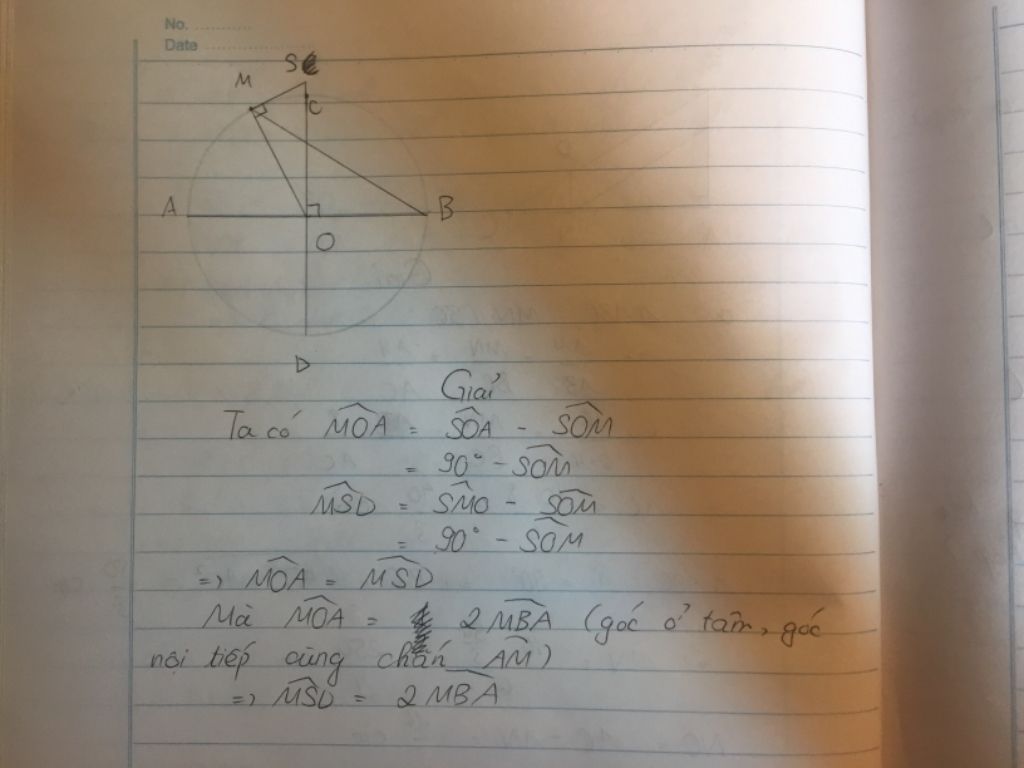 No.
Date
S
M
C
A
B
O
D
Giải
Ta có MÔA = SÔA - SÔM
= 90° - SÔM
MŜD = SM̂O - SÔM
= 90° - SÔM
=> MÔA = MŜD
Mà MÔA = 2 MB̂A (góc ở tâm, góc
nội tiếp cùng chắn AM)
=> MŜD = 2 MB̂A